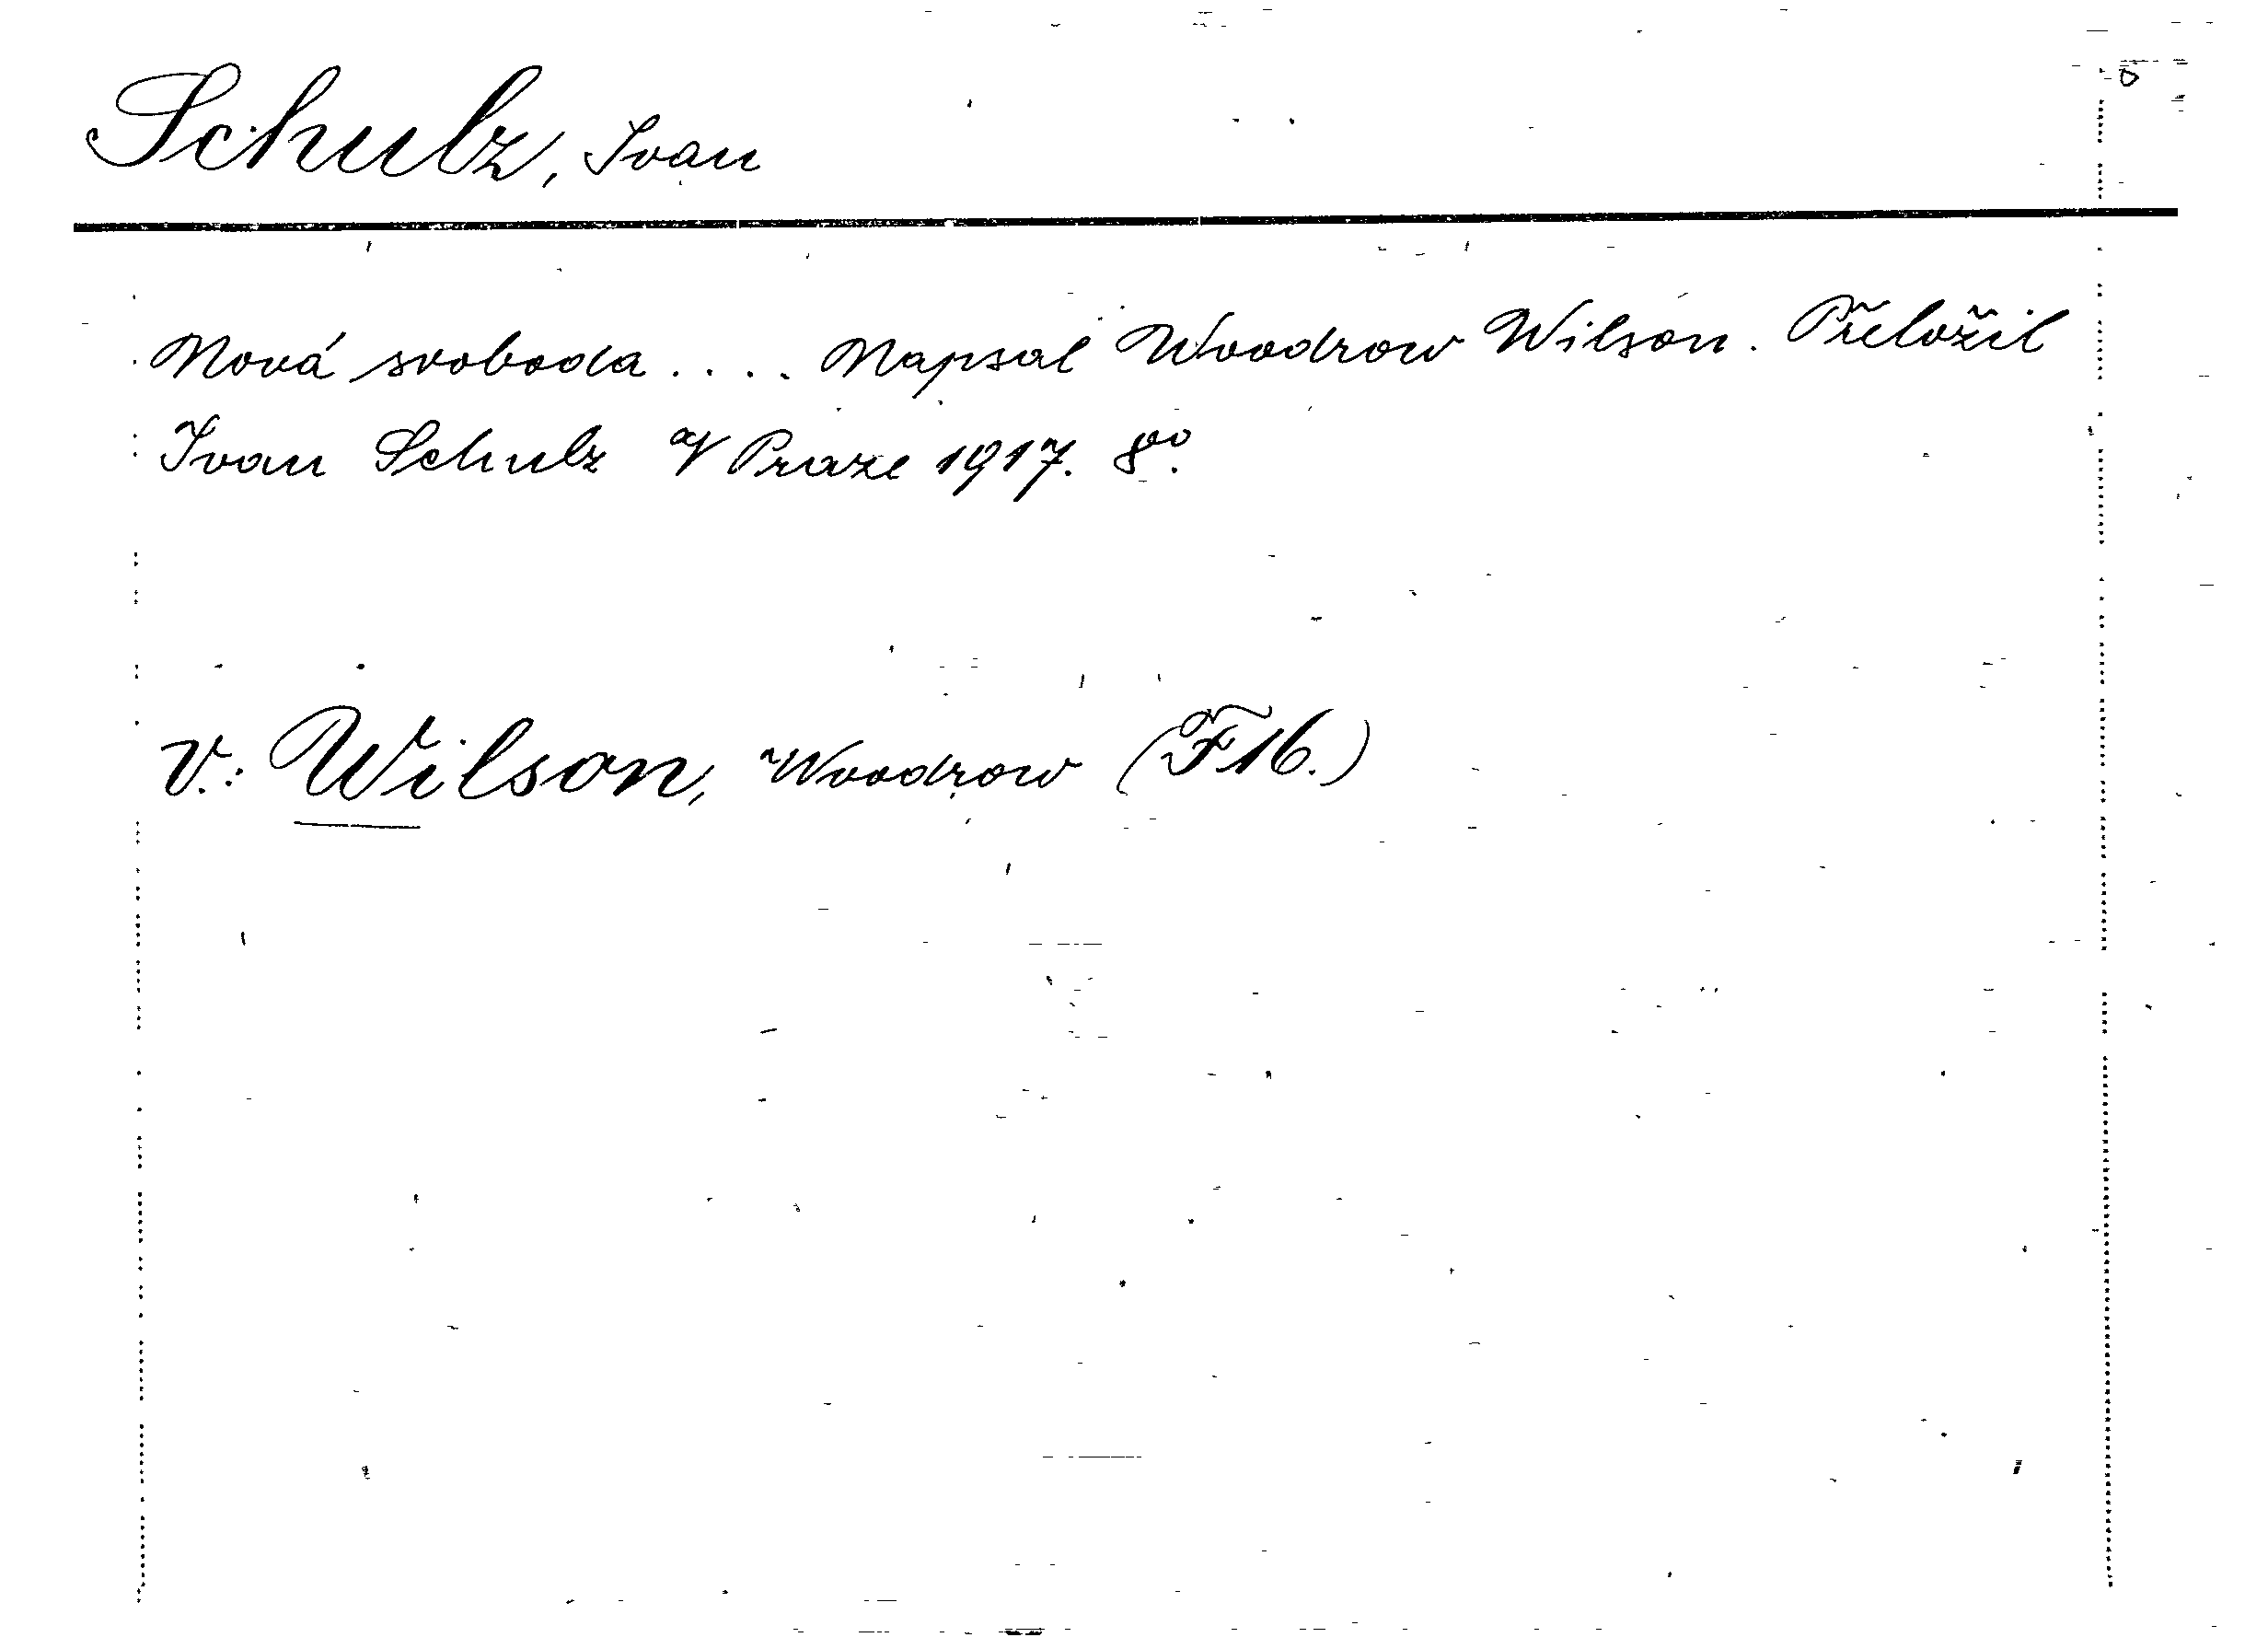 Schulz, Ivan
Nová svoboda .... Napsal Woodrow Wilson. Přeložil
Ivan Schulz V Praze 1917. 8vo.
V.: Wilson, Woodrow (F16.)